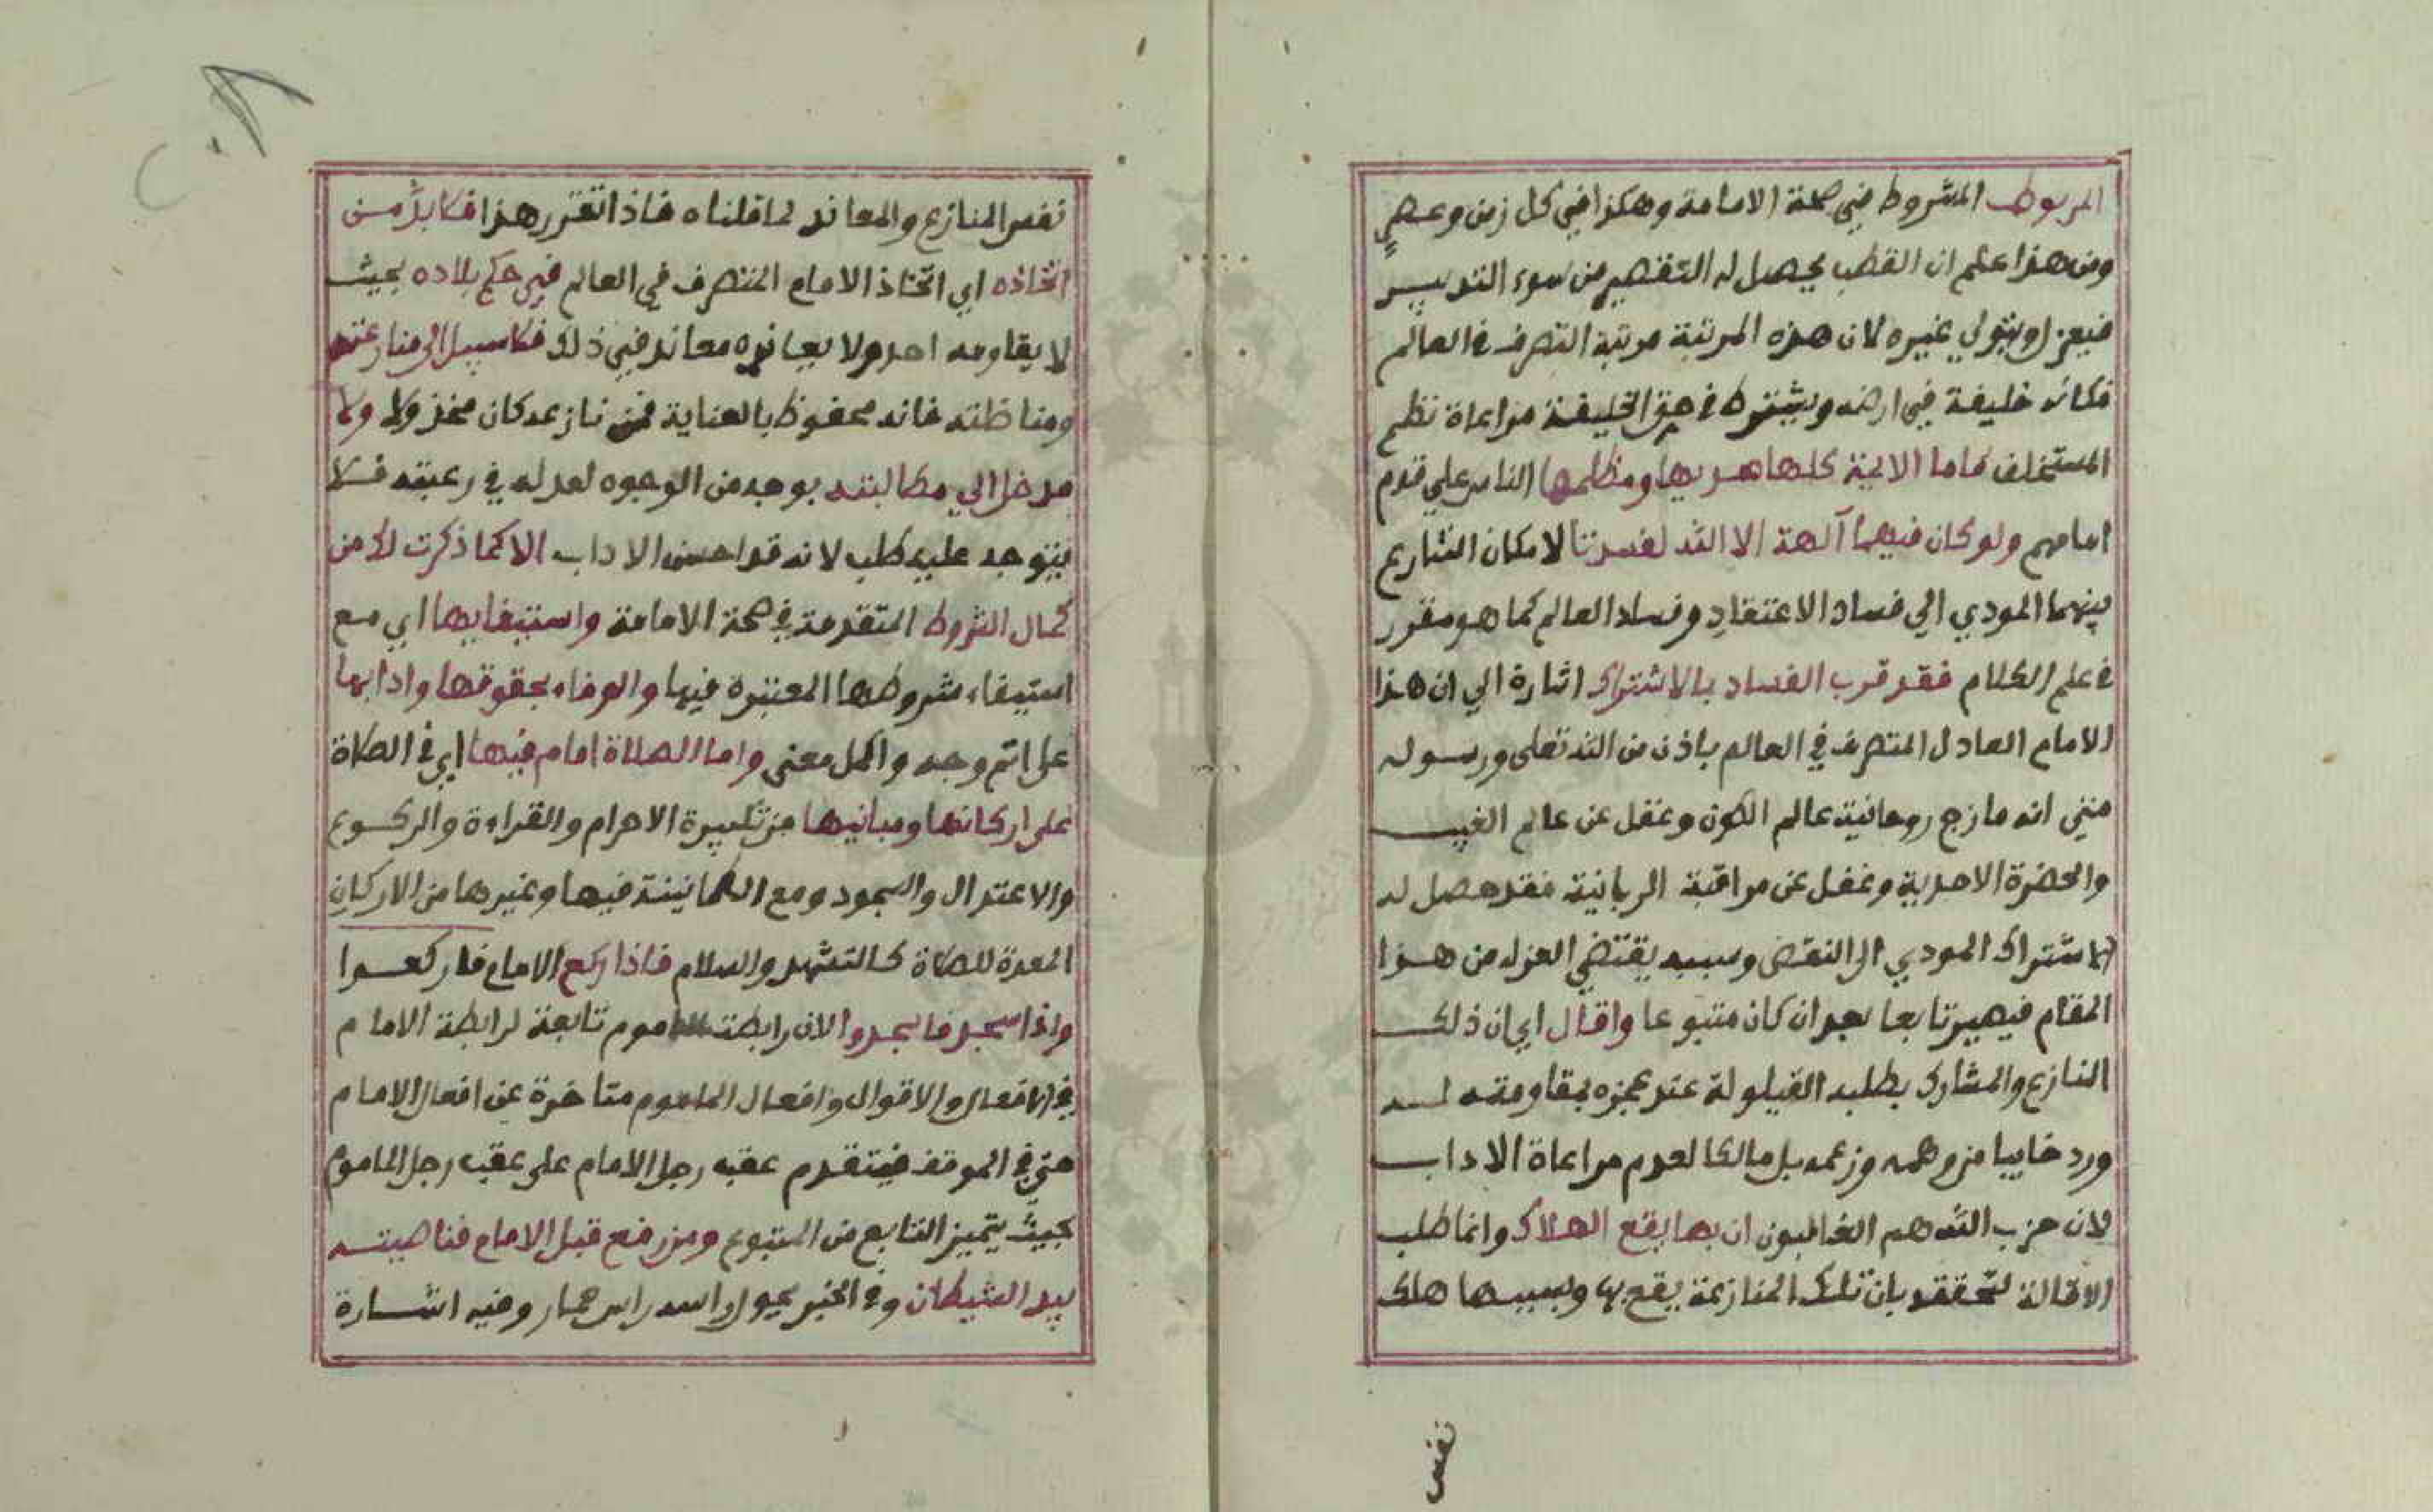 المربوط المشروط في صحة الامامة وهكذا في كل زمن وعصر
ومن هذا علم ان القطب يحصل له التقصير من سوء التدبير
فيعزل ويتولي غيره لان هذه المرتبة مرتبة التصرف في العالم
فكانه خليفة في ارضه ويشترط في حق الخليفة مراعاة نظم
المستخلف فاما الابنية كلها هديها ومظلمها الناس علي قدم
امامهم ولو كان فيهما آلهة الا الله لفسدتا لامكان التنازع
بينهما المودي الي فساد الاعتقاد وفساد العالم كما هو مقرر
في علم الكلام فقد قرب الفساد بالاشتراك اشارة الي ان هذا
الامام العادل المتصرف في العالم باذن من الله تعلى ورسوله
متي انه مازج روحانية عالم الكون وغفل عن عالم الغيب
والحضرة الاحدية وغفل عن مراقبة الربانية فقد حصل له
الاشتراك المودي الى النقص وسببه يقتضي العزله من هذا
المقام فيصير تابعا بعد ان كان متبوعا واقال اي ان ذلك
النازع والمشارك بطلبه القيلولة عند عجزه بمقاومته له
ورد خايبا من وهمه وزعمه بل مالكا لعدم مراعاة الاداب
لان حزب الله هم الغالبون ان بها يقع الهلاك وانما طلب
الاقالة لتحققه بان تلك المنازعة يقع بها وبسببها هلك
نفس
٢٠٨
نفس المنازع والمعاند لما قلناه فاذا تقرر هذا فلا بد من
اتخاذه اي اتخاذ الامام المتصرف في العالم في حكم بلاده بحيث
لا يقاومه احد ولا يعانده معاند في ذلك فلا سبيل الى منازعته
ومناظته فانه محفوظ بالعناية فمن نازعه كان مخذولا ولا
مدخل الي مطالبته بوجه من الوجوه لعدله في رعيته فلا
يتوجه عليه طلب لانه قد احسن الاداب الا كما ذكرت لك من
كمال الشروط المتقدمة في صحة الامامة واستيفايها اي مع
استيفاء شروطها المعتبرة فيها والوفاء بحقوقها وادابها
على اتم وجه واكمل معنى واما الصلاة امام فيها اي في الصلاة
على اركانها ومبانيها من تكبيرة الاحرام والقراءة والركوع
والاعتدال والسجود ومع الطمانينة فيها وغيرها من الاركان
المعدة للصلاة كالتشهد والسلام فاذا ركع الامام فاركعوا
واذا سجد فاسجدوا لان رابطة الماموم تابعة لرابطة الامام
في الافعال والاقوال وافعال الماموم متاخرة عن افعال الامام
حتي في الموقف فيتقدم عقبه رجل الامام على عقب رجل الماموم
بحيث يتميز التابع من المتبوع ومن رفع قبل الامام فناصيته
بيد الشيطان وفي الخبر يحول راسه راس حمار وفيه اشارة